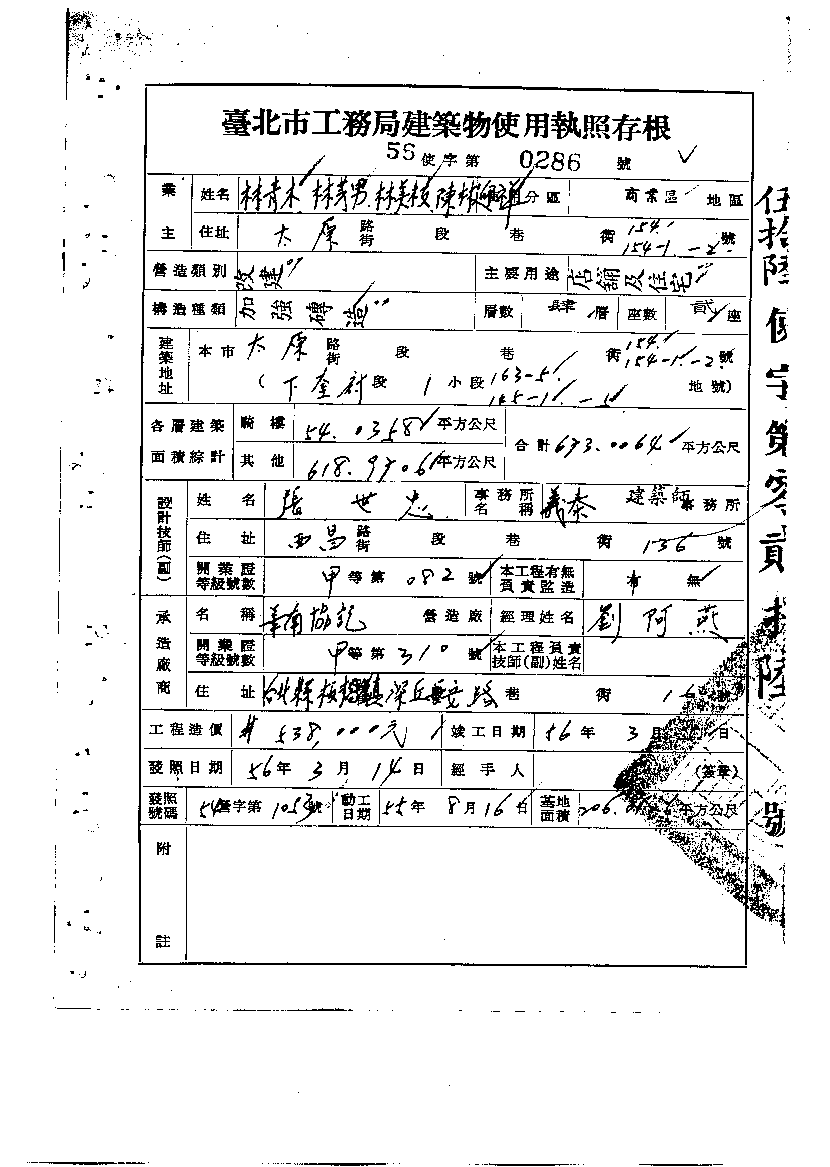 臺北市工務局建築物使用執照存根
56 使字第 0286 號
業主 姓名 林青木 林芽男 林美枝 陳 分區 商業區 地區
住址 太原 路街 段 巷 街 154. 154-1.-2. 號
營造類別 改建 主要用途 店舖及住宅
構造種類 加強磚造 層數 肆 層 座數 貳 座
建築地址 本市 太原 路街 段 巷 街 154. 154-1.-2. 號
(下奎府 段 1 小段 163-5. 165-1. 地號)
各層建築面積綜計 騎樓 54.0358 平方公尺 合計 673.0064 平方公尺
其他 618.9706 平方公尺
設計技師(副) 姓名 張世忠 事務所名稱 義泰 建築師 事務所
住址 西昌 路街 段 巷 街 136 號
開業證等級號數 甲等第 082 號 本工程有無負責監造 有 無
承造廠商 名稱 華南協記 營造廠 經理姓名 劉阿燕
開業證等級號數 甲等第 310 號 本工程負責技師(副)姓名
住址 台北縣板橋鎮深丘 路 巷 街 16 號
工程造價 # 538,000元 竣工日期 56 年 3 月 日
發照日期 56 年 3 月 14 日 經手人 (簽章)
發照號碼 54 營字第 1053 號 動工日期 55 年 8 月 16 日 基地面積 206. 平方公尺
附註
伍拾陸使字第零貳捌陸號